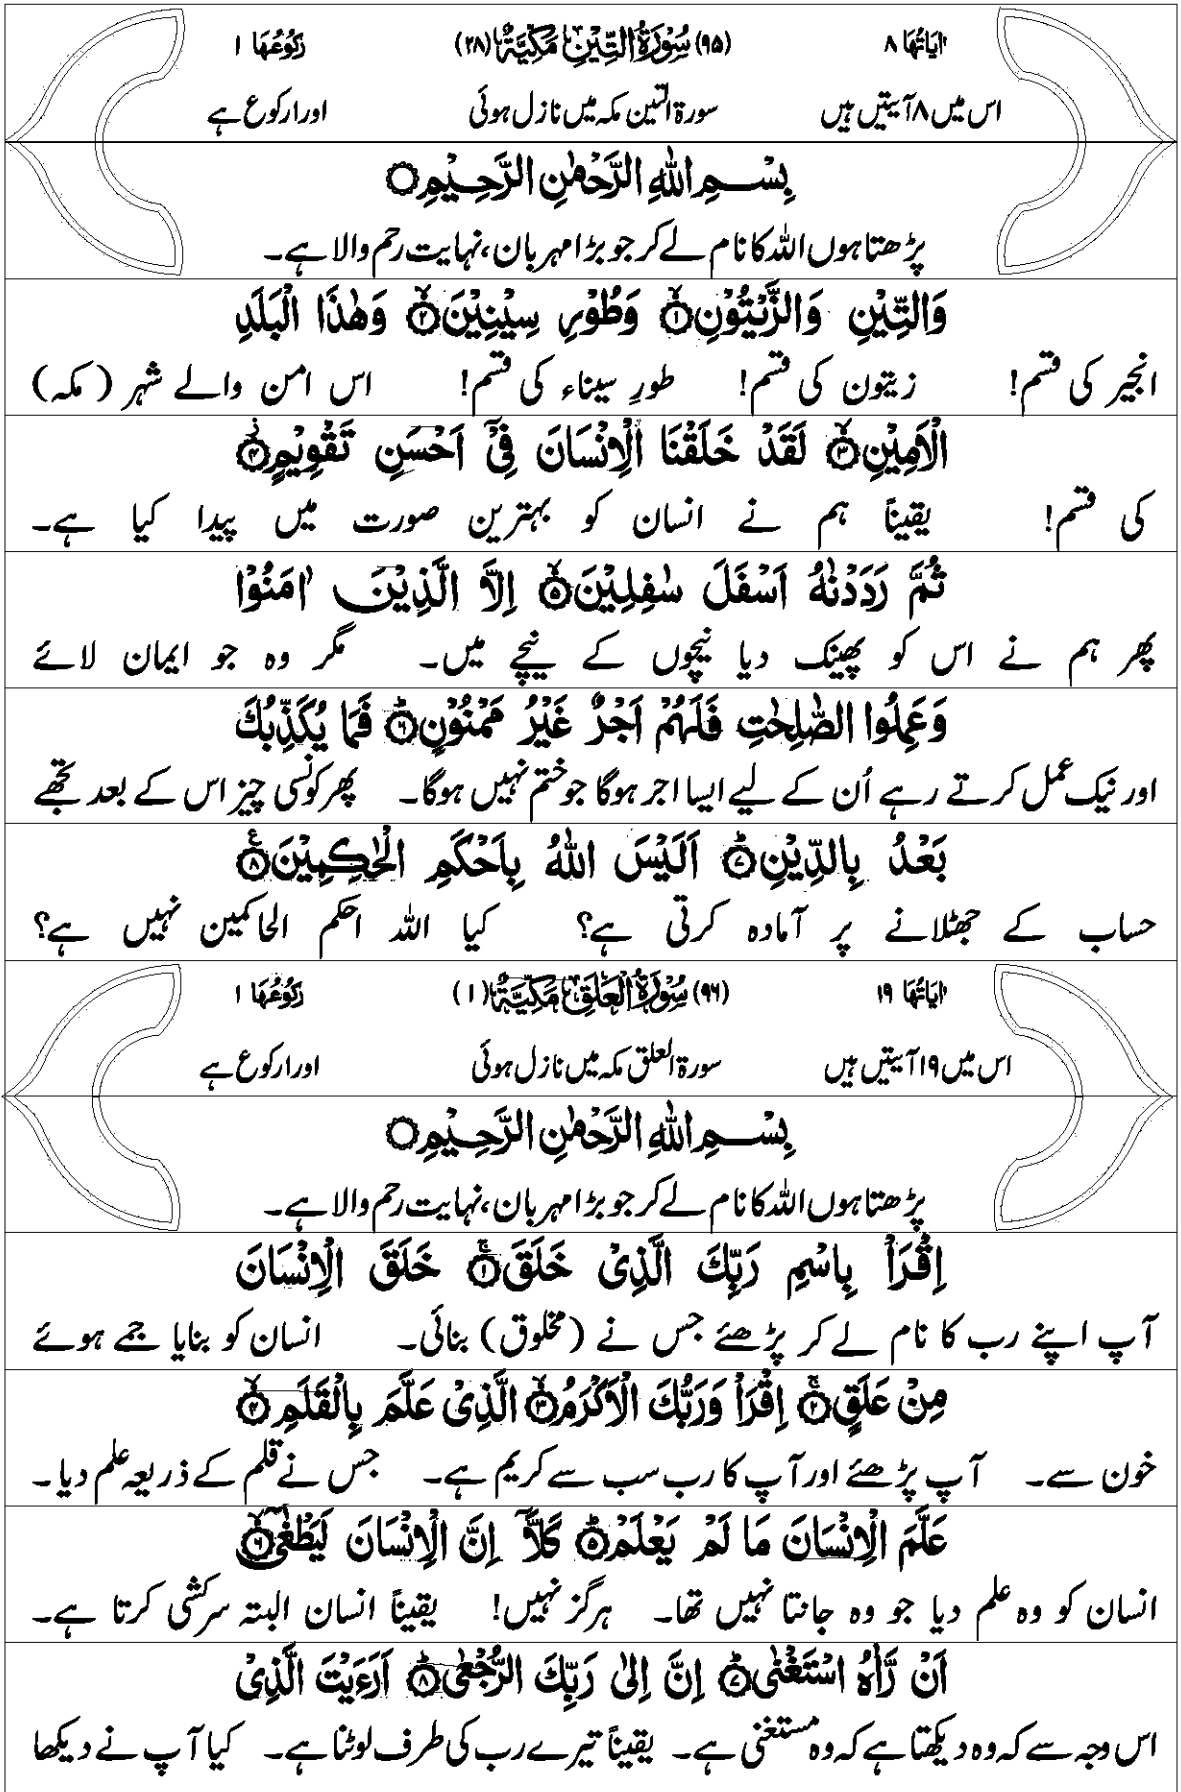 اٰيَاتُهَا ٨ (٩٥) سُوْرَةُ التِّيْنِ مَكِّيَّةٌ (٢٨) رُكُوْعُهَا ١
اس میں ٨ آیتیں ہیں سورۃ التین مکہ میں نازل ہوئی اور ١ رکوع ہے
بِسْمِ اللّٰهِ الرَّحْمٰنِ الرَّحِيْمِ
پڑھتا ہوں اللہ کا نام لے کر جو بڑا مہربان، نہایت رحم والا ہے۔
وَالتِّيْنِ وَالزَّيْتُوْنِ۝١ وَطُوْرِ سِيْنِيْنَ۝٢ وَهٰذَا الْبَلَدِ
انجیر کی قسم! زیتون کی قسم! طورِ سیناء کی قسم! اس امن والے شہر (مکہ)
الْاَمِيْنِ۝٣ لَقَدْ خَلَقْنَا الْاِنْسَانَ فِيْٓ اَحْسَنِ تَقْوِيْمٍ۝٤
کی قسم! یقیناً ہم نے انسان کو بہترین صورت میں پیدا کیا ہے۔
ثُمَّ رَدَدْنٰهُ اَسْفَلَ سٰفِلِيْنَ۝٥ اِلَّا الَّذِيْنَ اٰمَنُوْا
پھر ہم نے اس کو پھینک دیا نیچوں کے نیچے میں۔ مگر وہ جو ایمان لائے
وَعَمِلُوا الصّٰلِحٰتِ فَلَهُمْ اَجْرٌ غَيْرُ مَمْنُوْنٍ۝٦ فَمَا يُكَذِّبُكَ
اور نیک عمل کرتے رہے اُن کے لیے ایسا اجر ہوگا جو ختم نہیں ہوگا۔ پھر کونسی چیز اس کے بعد تجھے
بَعْدُ بِالدِّيْنِ۝٧ اَلَيْسَ اللّٰهُ بِاَحْكَمِ الْحٰكِمِيْنَ۝٨
حساب کے جھٹلانے پر آمادہ کرتی ہے؟ کیا اللہ احکم الحاکمین نہیں ہے؟
اٰيَاتُهَا ١٩ (٩٦) سُوْرَةُ الْعَلَقِ مَكِّيَّةٌ (١) رُكُوْعُهَا ١
اس میں ١٩ آیتیں ہیں سورۃ العلق مکہ میں نازل ہوئی اور ١ رکوع ہے
بِسْمِ اللّٰهِ الرَّحْمٰنِ الرَّحِيْمِ
پڑھتا ہوں اللہ کا نام لے کر جو بڑا مہربان، نہایت رحم والا ہے۔
اِقْرَاْ بِاسْمِ رَبِّكَ الَّذِيْ خَلَقَ۝١ خَلَقَ الْاِنْسَانَ
آپ اپنے رب کا نام لے کر پڑھئے جس نے (مخلوق) بنائی۔ انسان کو بنایا جمے ہوئے
مِنْ عَلَقٍ۝٢ اِقْرَاْ وَرَبُّكَ الْاَكْرَمُ۝٣ الَّذِيْ عَلَّمَ بِالْقَلَمِ۝٤
خون سے۔ آپ پڑھئے اور آپ کا رب سب سے کریم ہے۔ جس نے قلم کے ذریعہ علم دیا۔
عَلَّمَ الْاِنْسَانَ مَا لَمْ يَعْلَمْ۝٥ كَلَّآ اِنَّ الْاِنْسَانَ لَيَطْغٰٓى۝٦
انسان کو وہ علم دیا جو وہ جانتا نہیں تھا۔ ہرگز نہیں! یقیناً انسان البتہ سرکشی کرتا ہے۔
اَنْ رَّاٰهُ اسْتَغْنٰى۝٧ اِنَّ اِلٰى رَبِّكَ الرُّجْعٰى۝٨ اَرَءَيْتَ الَّذِيْ
اس وجہ سے کہ وہ دیکھتا ہے کہ وہ مستغنی ہے۔ یقیناً تیرے رب کی طرف لوٹنا ہے۔ کیا آپ نے دیکھا